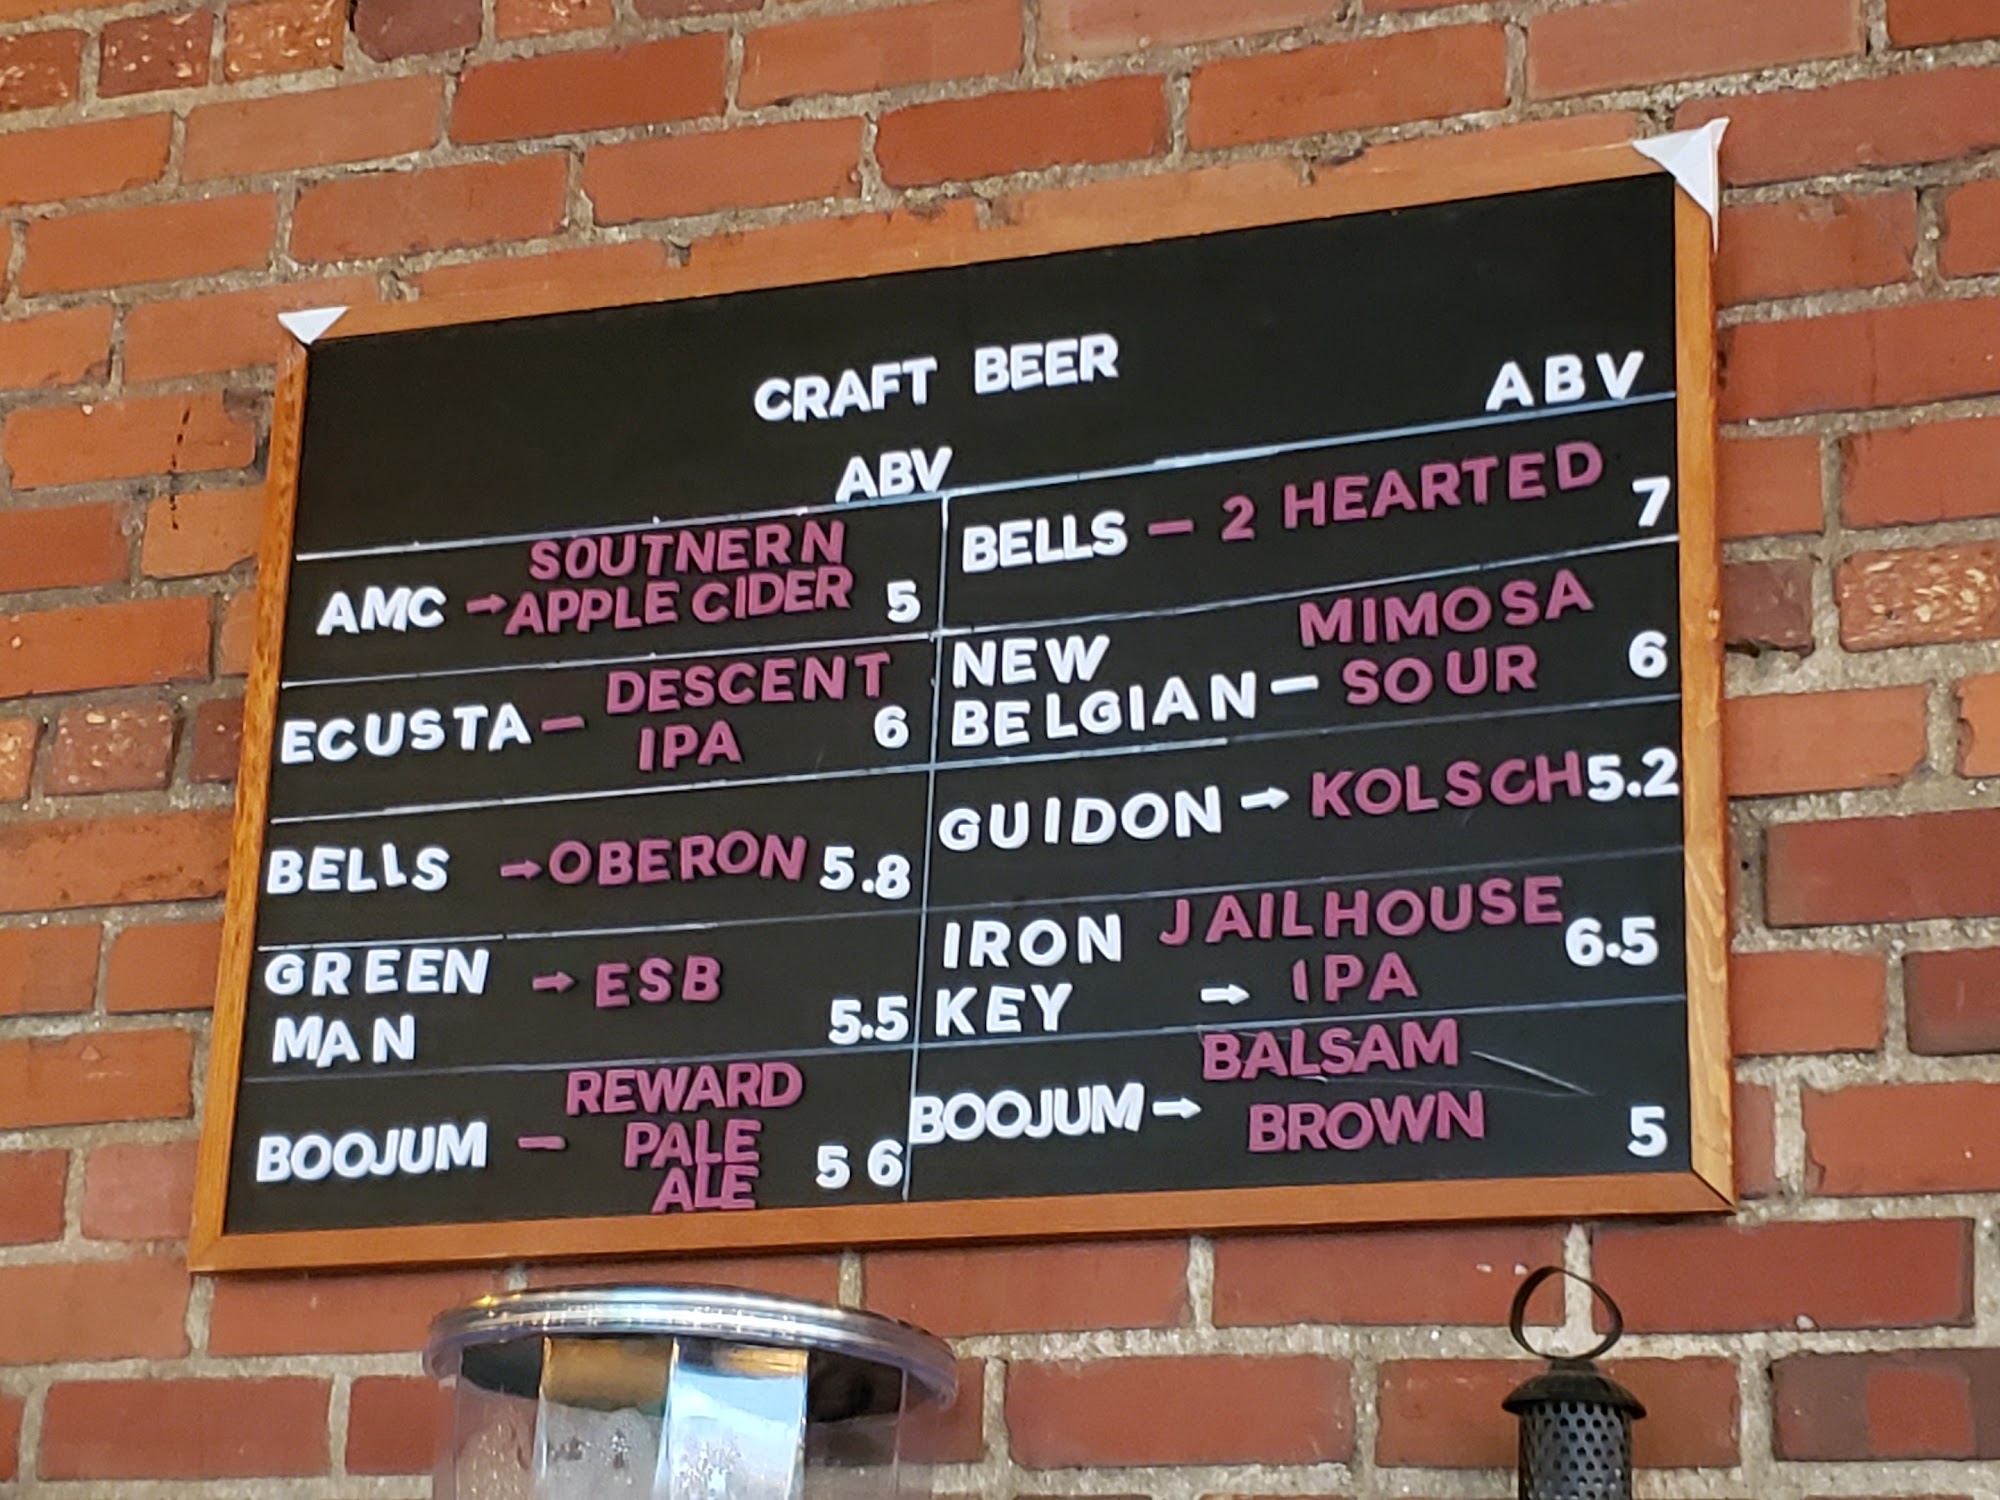 CRAFT BEER
ABV
ABV
AMC → SOUTNERN
APPLE CIDER 5
ECUSTA — DESCENT
IPA 6
BELLS → OBERON 5.8
GREEN
MAN → ESB 5.5
BOOJUM — REWARD
PALE
ALE 5 6
BELLS — 2 HEARTED 7
NEW
BELGIAN — MIMOSA
SOUR 6
GUIDON → KOLSCH 5.2
IRON
KEY → JAILHOUSE
IPA 6.5
BOOJUM → BALSAM
BROWN 5